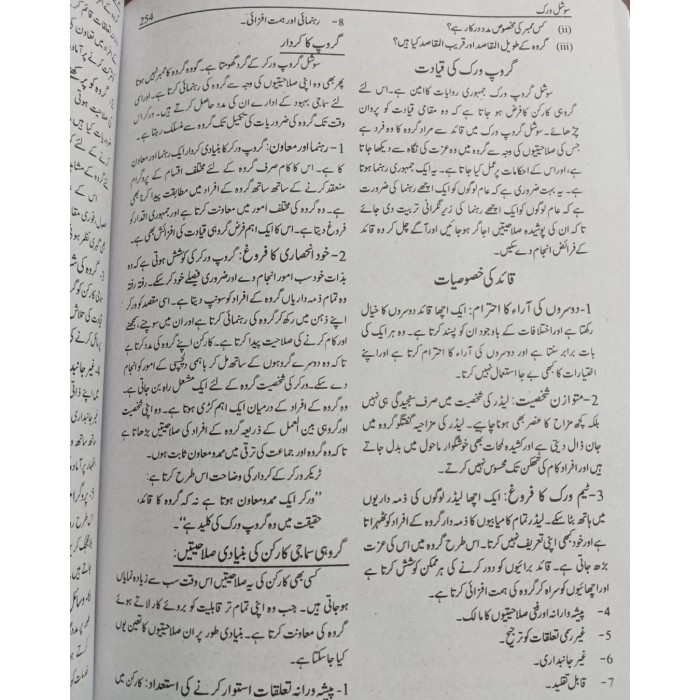 سوشل ورک
254
(ii) کس ممبر کی مخصوص مدد درکار ہے؟
(iii) گروہ کے طویل المقاصد اور قریب المقاصد کیا ہیں؟
گروپ ورک کی قیادت
سوشل گروپ ورک جمہوری روایات کا امین ہے۔ اس لئے
گروہی کارکن کا فرض ہو جاتا ہے کہ وہ مقامی قیادت کو پروان
چڑھائے۔ سوشل گروپ ورک میں قائد سے مراد گروہ کا وہ فرد ہے
جس کی صلاحیتوں کی وجہ سے گروہ میں وہ عزت کی نگاہ سے دیکھا جاتا
ہے، اور اس کے احکامات پر عمل کیا جاتا ہے۔ یہ ایک جمہوری رہنما ہوتا
ہے۔ یہ بہت ضروری ہے کہ عام لوگوں کو ایک اچھے رہنما کی ضرورت
ہے کہ عام لوگوں کو ایک اچھے رہنما کی زیر نگرانی تربیت دی جائے
تاکہ ان کی پوشیدہ صلاحیتیں اجاگر ہو جائیں اور آگے چل کر وہ قائد
کے فرائض انجام دے سکیں۔
قائد کی خصوصیات
1- دوسروں کی آراء کا احترام: ایک اچھا قائد دوسروں کا خیال
رکھتا ہے اور اختلافات کے باوجود ان کو پسند کرتا ہے۔ وہ ہر ایک کی
بات برابر سنتا ہے اور دوسروں کی آراء کا احترام کرتا ہے اور اپنے
اختیارات کا کبھی بے جا استعمال نہیں کرتا۔
2- متوازن شخصیت: لیڈر کی شخصیت میں صرف سنجیدگی ہی نہیں
بلکہ کچھ مزاح کا عنصر بھی ہونا چاہیے۔ لیڈر کی مزاحیہ گفتگو گروہ میں
جان ڈال دیتی ہے اور کشیدہ لمحات بھی خوشگوار ماحول میں بدل جاتے
ہیں اور افراد کام کی تھکن تک محسوس نہیں کرتے۔
3- ٹیم ورک کا فروغ: ایک اچھا لیڈر لوگوں کی ذمہ داریوں
میں ہاتھ بٹا سکے۔ لیڈر تمام کامیابیوں کا ذمہ دار گروہ کے افراد کو ٹھہراتا
ہے اور خود کبھی اپنی تعریف نہیں کرتا۔ اس طرح گروہ میں اس کی عزت
بڑھ جاتی ہے۔ قائد برائیوں کو دور کرنے کی ہر ممکن کوشش کرتا ہے
اور اچھائیوں کو سراہ کر گروہ کی ہمت افزائی کرتا ہے۔
4- پیشہ دارانہ اور فنی صلاحیتوں کا مالک۔
5- غیر رسمی تعلقات کو ترجیح۔
6- غیر جانبداری۔
7- قابل تقلید۔
8- رہنمائی اور ہمت افزائی۔
گروپ کا کردار
سوشل گروپ ورکر کے گرد گھومتا ہے۔ گو وہ گروہ کا ممبر نہیں ہوتا
پھر بھی وہ اپنی صلاحیتوں سے گروہ کی رہنمائی کرتا ہے۔ اور اسی
لئے سماجی بہبود کے ادارے ان کی مدد حاصل کرتے ہیں۔ ورکر اس
وقت تک گروہ کی ضروریات کی تکمیل تک گروہ سے منسلک رہتا ہے۔
1- رہنما و معاون: گروپ ورکر کا بنیادی کردار ایک رہنما اور معاون
کا ہے۔ اس کا کام صرف گروہ کے لئے مختلف اقسام کے پروگرام
منعقد کرنے کے ساتھ ساتھ گروہ کے افراد میں مطابقت پیدا کرنا بھی
ہے۔ وہ گروہ کی مختلف امور میں معاونت کرتا ہے اور جمہوری اقدار کو
فروغ دیتا ہے۔ اس کا ایک اہم فرض گروہی قیادت کی افزائش بھی ہے۔
2- خود انحصاری کا فروغ: گروپ ورکر کی کوشش ہوتی ہے کہ وہ
بذات خود سب امور انجام دے اور ضروری فیصلے خود کر سکے۔ رفتہ رفتہ
وہ تمام ذمہ داریاں گروہ کے افراد کو سونپ دیتا ہے۔ اسی مقصد کو ورکر
اپنے ذہن میں رکھ کر گروہ کی رہنمائی کرتا ہے اور ان میں سوچنے، سمجھنے
اور کام کرنے کی صلاحیت پیدا کرتا ہے۔ کارکن اپنے گروہ کی مدد کرتا ہے
تاکہ وہ دوسرے گروہوں کے ساتھ مل کر باہمی دلچسپی کے امور کو انجام
دے سکے۔ ورکر کی شخصیت گروہ کے لئے ایک مشعل راہ بن جاتی ہے۔
وہ گروہ کے افراد کے درمیان ایک اہم کڑی ہوتا ہے۔ وہ اپنی شخصیت
اور گروہی بین العمل کے ذریعہ گروہ کے افراد کی صلاحیتیں بڑھاتا ہے
تاکہ وہ گروہ اور جماعت کی ترقی میں ممد و معاون ثابت ہوں۔
ٹریکر ورکر کے کردار کی وضاحت اس طرح کرتا ہے:
”ورکر ایک ممد و معاون ہوتا ہے نہ کہ گروہ کا قائد،
حقیقت میں وہ گروپ ورک کی کلید ہے“۔
گروہی سماجی کارکن کی بنیادی صلاحیتیں:
کسی بھی کارکن کی یہ صلاحیتیں اس وقت سب سے زیادہ نمایاں
ہو جاتی ہیں۔ جب وہ اپنی تمام تر قابلیت کو بروئے کار لاتے ہوئے
گروہ کی معاونت کرتا ہے۔ بنیادی طور پر ان صلاحیتوں کا تعین یوں
کیا جا سکتا ہے۔
1- پیشہ ورانہ تعلقات استوار کرنے کی استعداد: کارکن میں